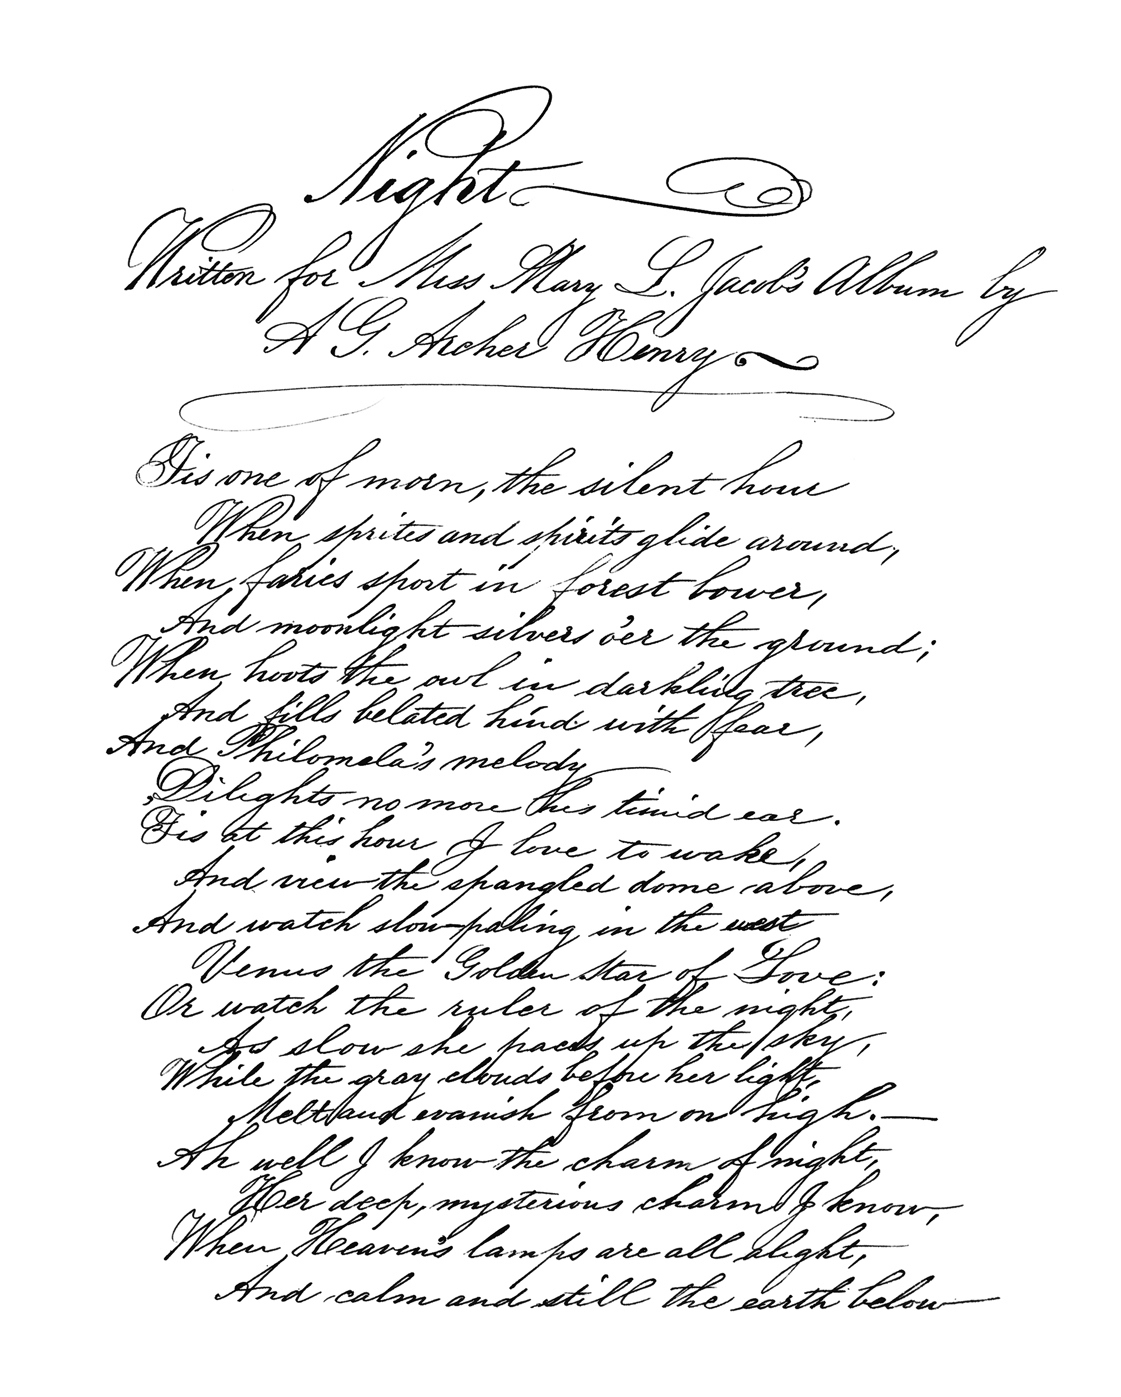 Night
Written for Miss Mary L. Jacob's Album by
A G. Archer Henry
Tis one of morn, the silent hour
When sprites and spirits glide around,
When faries sport in forest bower,
And moonlight silvers o'er the ground;
When hoots the owl in darkling tree,
And fills belated hind with fear,
And Philomela's melody
Dilights no more his timid ear.
Tis at this hour I love to wake,
And view the spangled dome above,
And watch slow-paling in the west
Venus the Golden Star of Love:
Or watch the ruler of the night,
As slow she paces up the sky,
While the gray clouds before her light,
Melt and evanish from on high.—
Ah well I know the charm of night,
Her deep, mysterious charm I know,
When Heaven's lamps are all alight,
And calm and still the earth below